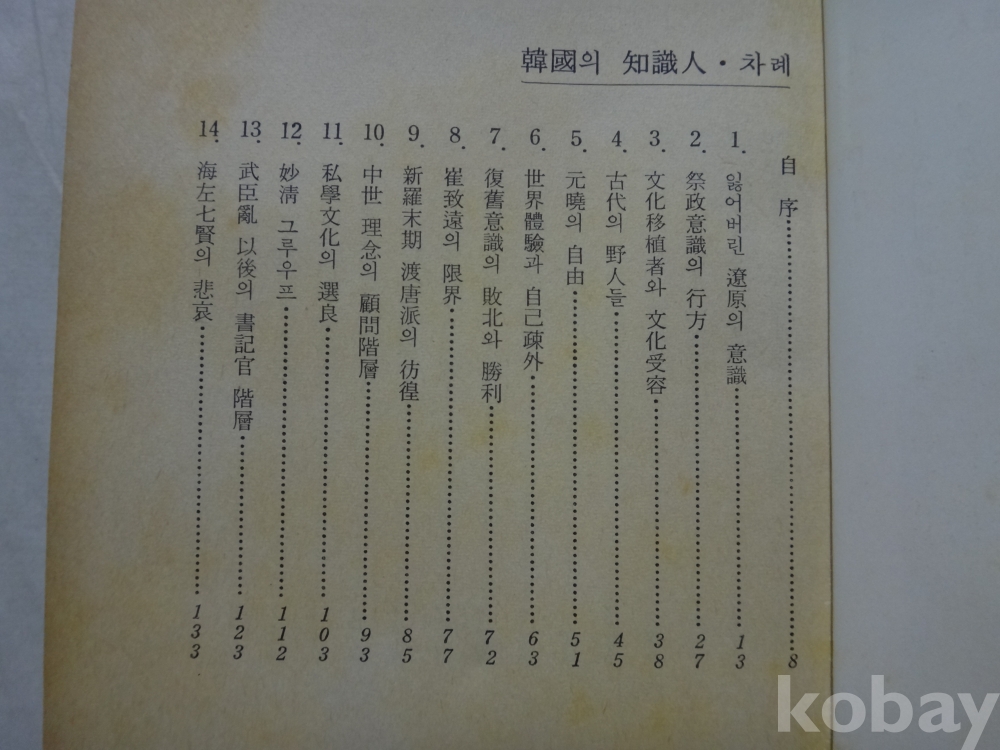 韓國의 知識人・차례
自序 8
1. 잃어버린 遼原의 意識 13
2. 祭政意識의 行方 27
3. 文化移植者와 文化受容 38
4. 古代의 野人들 45
5. 元曉의 自由 51
6. 世界體驗과 自己疎外 63
7. 復舊意識의 敗北와 勝利 72
8. 崔致遠의 限界 77
9. 新羅末期 渡唐派의 彷徨 85
10. 中世 理念의 顧問階層 93
11. 私學文化의 選良 103
12. 妙淸 그루우프 112
13. 武臣亂 以後의 書記官 階層 123
14. 海左七賢의 悲哀 133
kobay